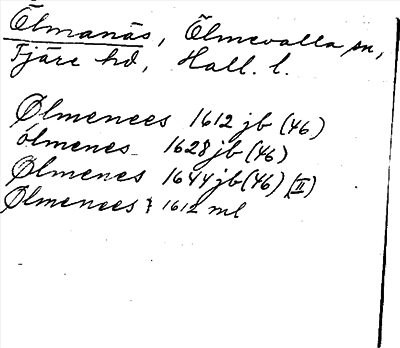 Ölmanäs, Ölmevalla sn,
Fjäre hd, Hall. l.
Ølmenees 1612 jb (46)
ólmenes 1628 jb (46)
Ølmenes 1644 jb (46) (II)
Ølmenees 1612 ml